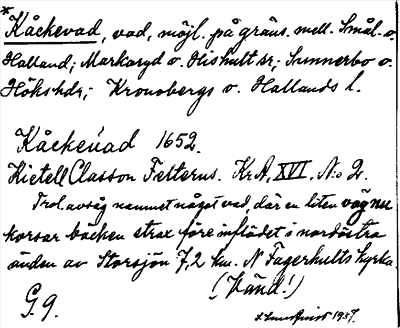 *
Kåckevad, vad, möjl. på gräns. mell. Smål. o.
Halland; Markaryd o. Hishult sr; Sunnerbo o.
Hökshdr; Kronobergs o. Hallands l.
Kåckeuad 1652.
Kietell Classon Felterus. Kr.A. XVI. N:o 2.
Trol. avsåg namnet något vad, där en liten väg nu
korsar bäcken strax före inflödet i nordöstra
änden av Storsjön 7,2 km. N Fagerhults kyrka.
(Vänd!)
G. 9.
1937.